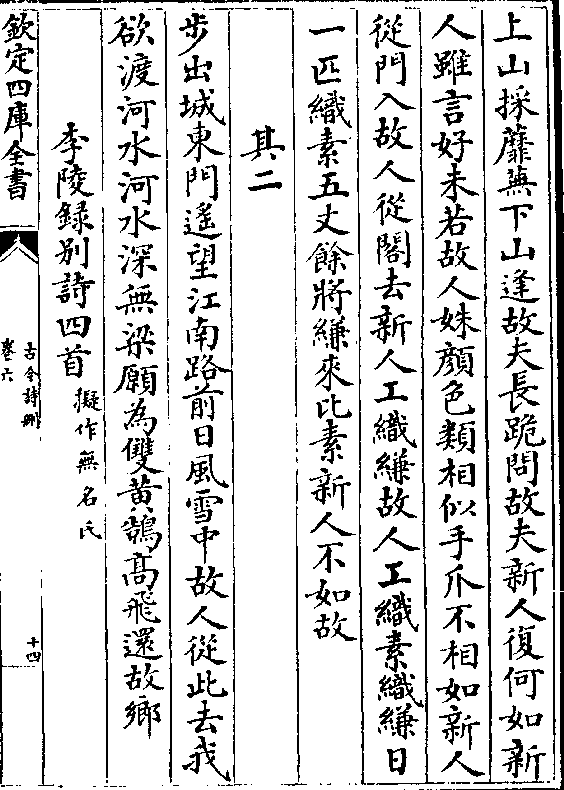 上山採蘼蕪下山逢故夫長跪問故夫新人復何如新
人雖言好未若故人姝顔色類相似手爪不相如新人
從門入故人從閤去新人工織縑故人工織素織縑日
一匹織素五丈餘將縑來比素新人不如故
其二
步出城東門遙望江南路前日風雪中故人從此去我
欲渡河水河水深無梁願為雙黃鵠高飛還故鄉
李陵録别詩四首擬作無名氏
欽定四庫全書
古今詩刪
卷六
十四